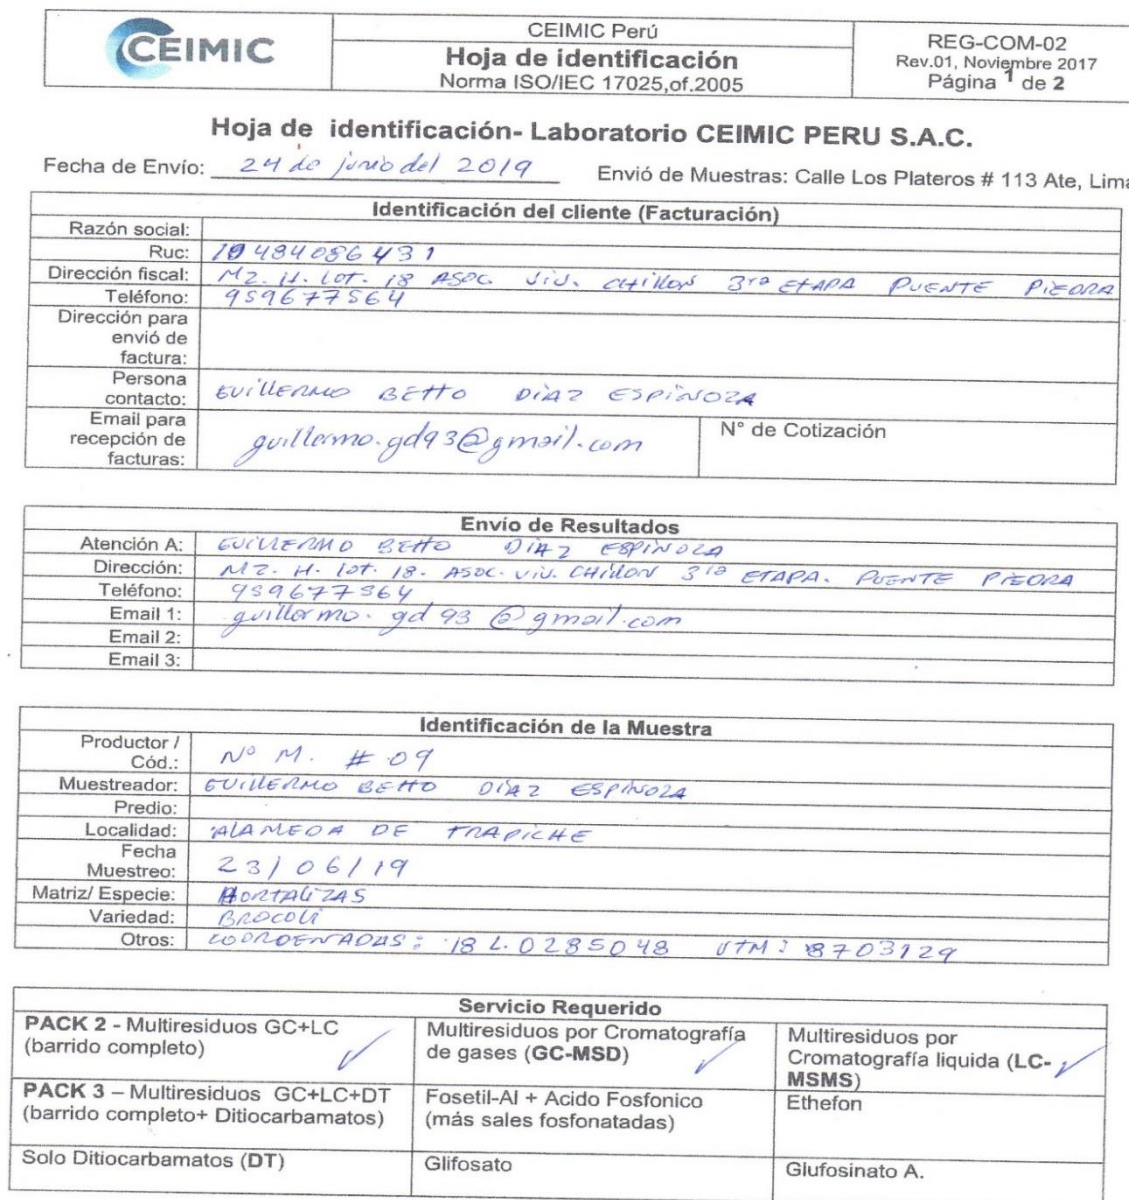 CEIMIC
CEIMIC Perú
Hoja de identificación
Norma ISO/IEC 17025,of.2005
REG-COM-02
Rev.01, Noviembre 2017
Página 1 de 2
Hoja de identificación- Laboratorio CEIMIC PERU S.A.C.
Fecha de Envío: 24 de junio del 2019 Envió de Muestras: Calle Los Plateros # 113 Ate, Lima
Identificación del cliente (Facturación)
Razón social:
Ruc: 10484086431
Dirección fiscal: MZ. H. LOT. 18 ASOC. VIV. CHILLON 3ra ETAPA PUENTE PIEDRA
Teléfono: 959677564
Dirección para
envió de
factura:
Persona
contacto: GUILLERMO BETTO DÍAZ ESPINOZA
Email para
recepción de
facturas: guillermo.gd93@gmail.com
N° de Cotización
Envío de Resultados
Atención A: GUILLERMO BETTO DÍAZ ESPINOZA
Dirección: MZ. H. LOT. 18. ASOC. VIV. CHILLON 3ra ETAPA. PUENTE PIEDRA
Teléfono: 959677564
Email 1: guillermo.gd93@gmail.com
Email 2:
Email 3:
Identificación de la Muestra
Productor /
Cód.: N° M. # 09
Muestreador: GUILLERMO BETTO DÍAZ ESPINOZA
Predio:
Localidad: ALAMEDA DE TRAPICHE
Fecha
Muestreo: 23/06/19
Matriz/ Especie: HORTALIZAS
Variedad: BROCOLI
Otros: COORDENADAS: 18 L. 0285048 UTM: 8703129
Servicio Requerido
PACK 2 - Multiresiduos GC+LC
(barrido completo)
Multiresiduos por Cromatografía
de gases (GC-MSD)
Multiresiduos por
Cromatografía liquida (LC-
MSMS)
PACK 3 – Multiresiduos GC+LC+DT
(barrido completo+ Ditiocarbamatos)
Fosetil-Al + Acido Fosfonico
(más sales fosfonatadas)
Ethefon
Solo Ditiocarbamatos (DT)
Glifosato
Glufosinato A.